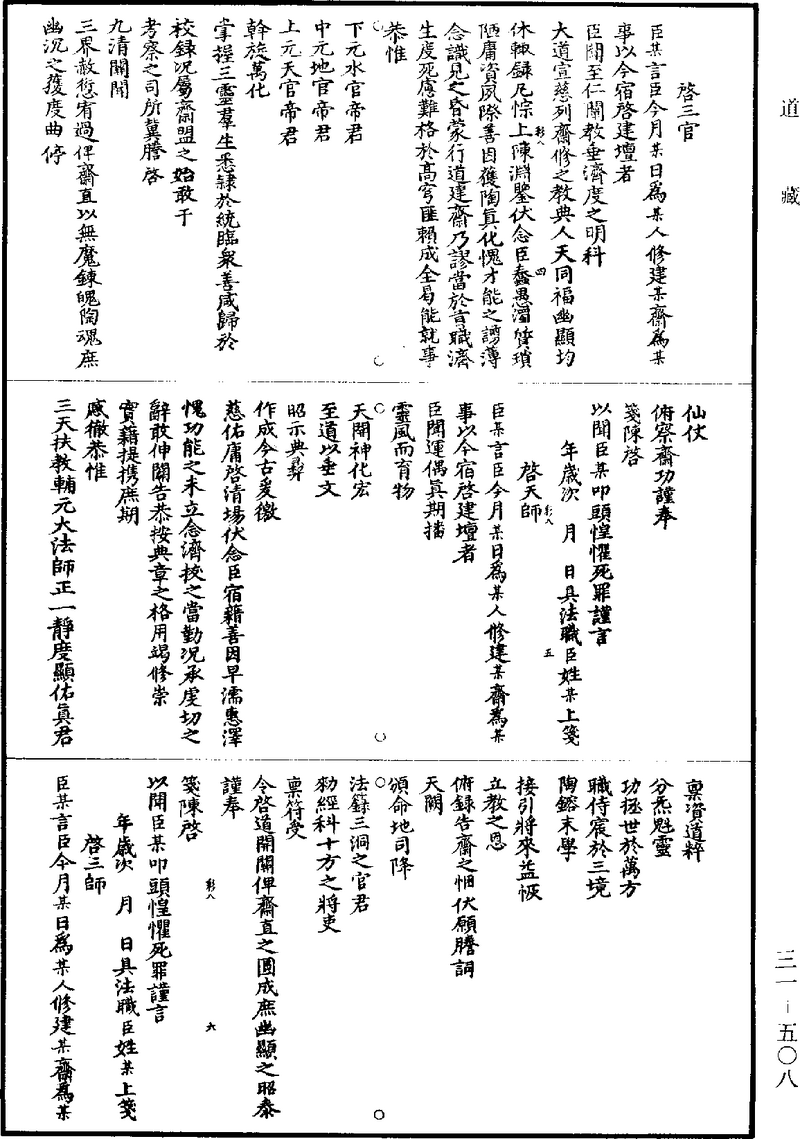 道藏
啓三官
臣某言臣今月某日爲某人修建某齋爲某
事以今宿啓建壇者
臣聞至仁闡教垂濟度之明科
大道宣慈列齋修之教典人天同福幽顯均
休輙録凡悰上陳淵鑒伏念臣蠢愚濁質瑣
陋庸資夙際善因獲陶真化愧才能之謭薄
念識見之昏蒙行道建齋乃謬當於言職濟
生度死慮難格於高穹匪賴成全曷能就事
恭惟
下元水官帝君
中元地官帝君
上元天官帝君
幹旋萬化
掌握三靈羣生悉隸於統臨衆善咸歸於
校録況屬齋盟之始敢于
考察之司所冀謄啓
九清關聞
三界赦愆宥過俾齋直以無魔鍊魄陶魂庶
幽沉之獲度曲停
仙仗
俯察齋功謹奉
箋陳啓
以聞臣某叩頭惶懼死罪謹言
年歲次 月 日具法職臣姓某上箋
啓天師
臣某言臣今月某日爲某人修建某齋爲某
事以今宿啓建壇者
臣聞運偶真期播
靈風而育物
天開神化宏
至道以垂文
昭示典彞
作成今古爰徼
慈佑庸啓清場伏念臣宿藉善因早濡惠澤
愧功能之未立念濟拔之當勤況承虔切之
辭敢伸關告恭按典章之格用竭修崇
實藉提攜庶期
感徹恭惟
三天扶教輔元大法師正一靜度顯佑真君
稟資道粹
分炁魁靈
功拯世於萬方
職侍宸於三境
陶鎔末學
接引將來益恢
立教之恩
俯録告齋之悃伏願謄詞
天闕
頒命地司降
法籙三洞之官君
勑經科十方之將吏
稟符受
令啓道開關俾齋直之圓成庶幽顯之昭泰
謹奉
箋陳啓
以聞臣某叩頭惶懼死罪謹言
年歲次 月 日具法職臣姓某上箋
啓三師
臣某言臣今月某日爲某人修建某齋爲某
彩八
四
彩八
五
彩八
六
三一-五〇八